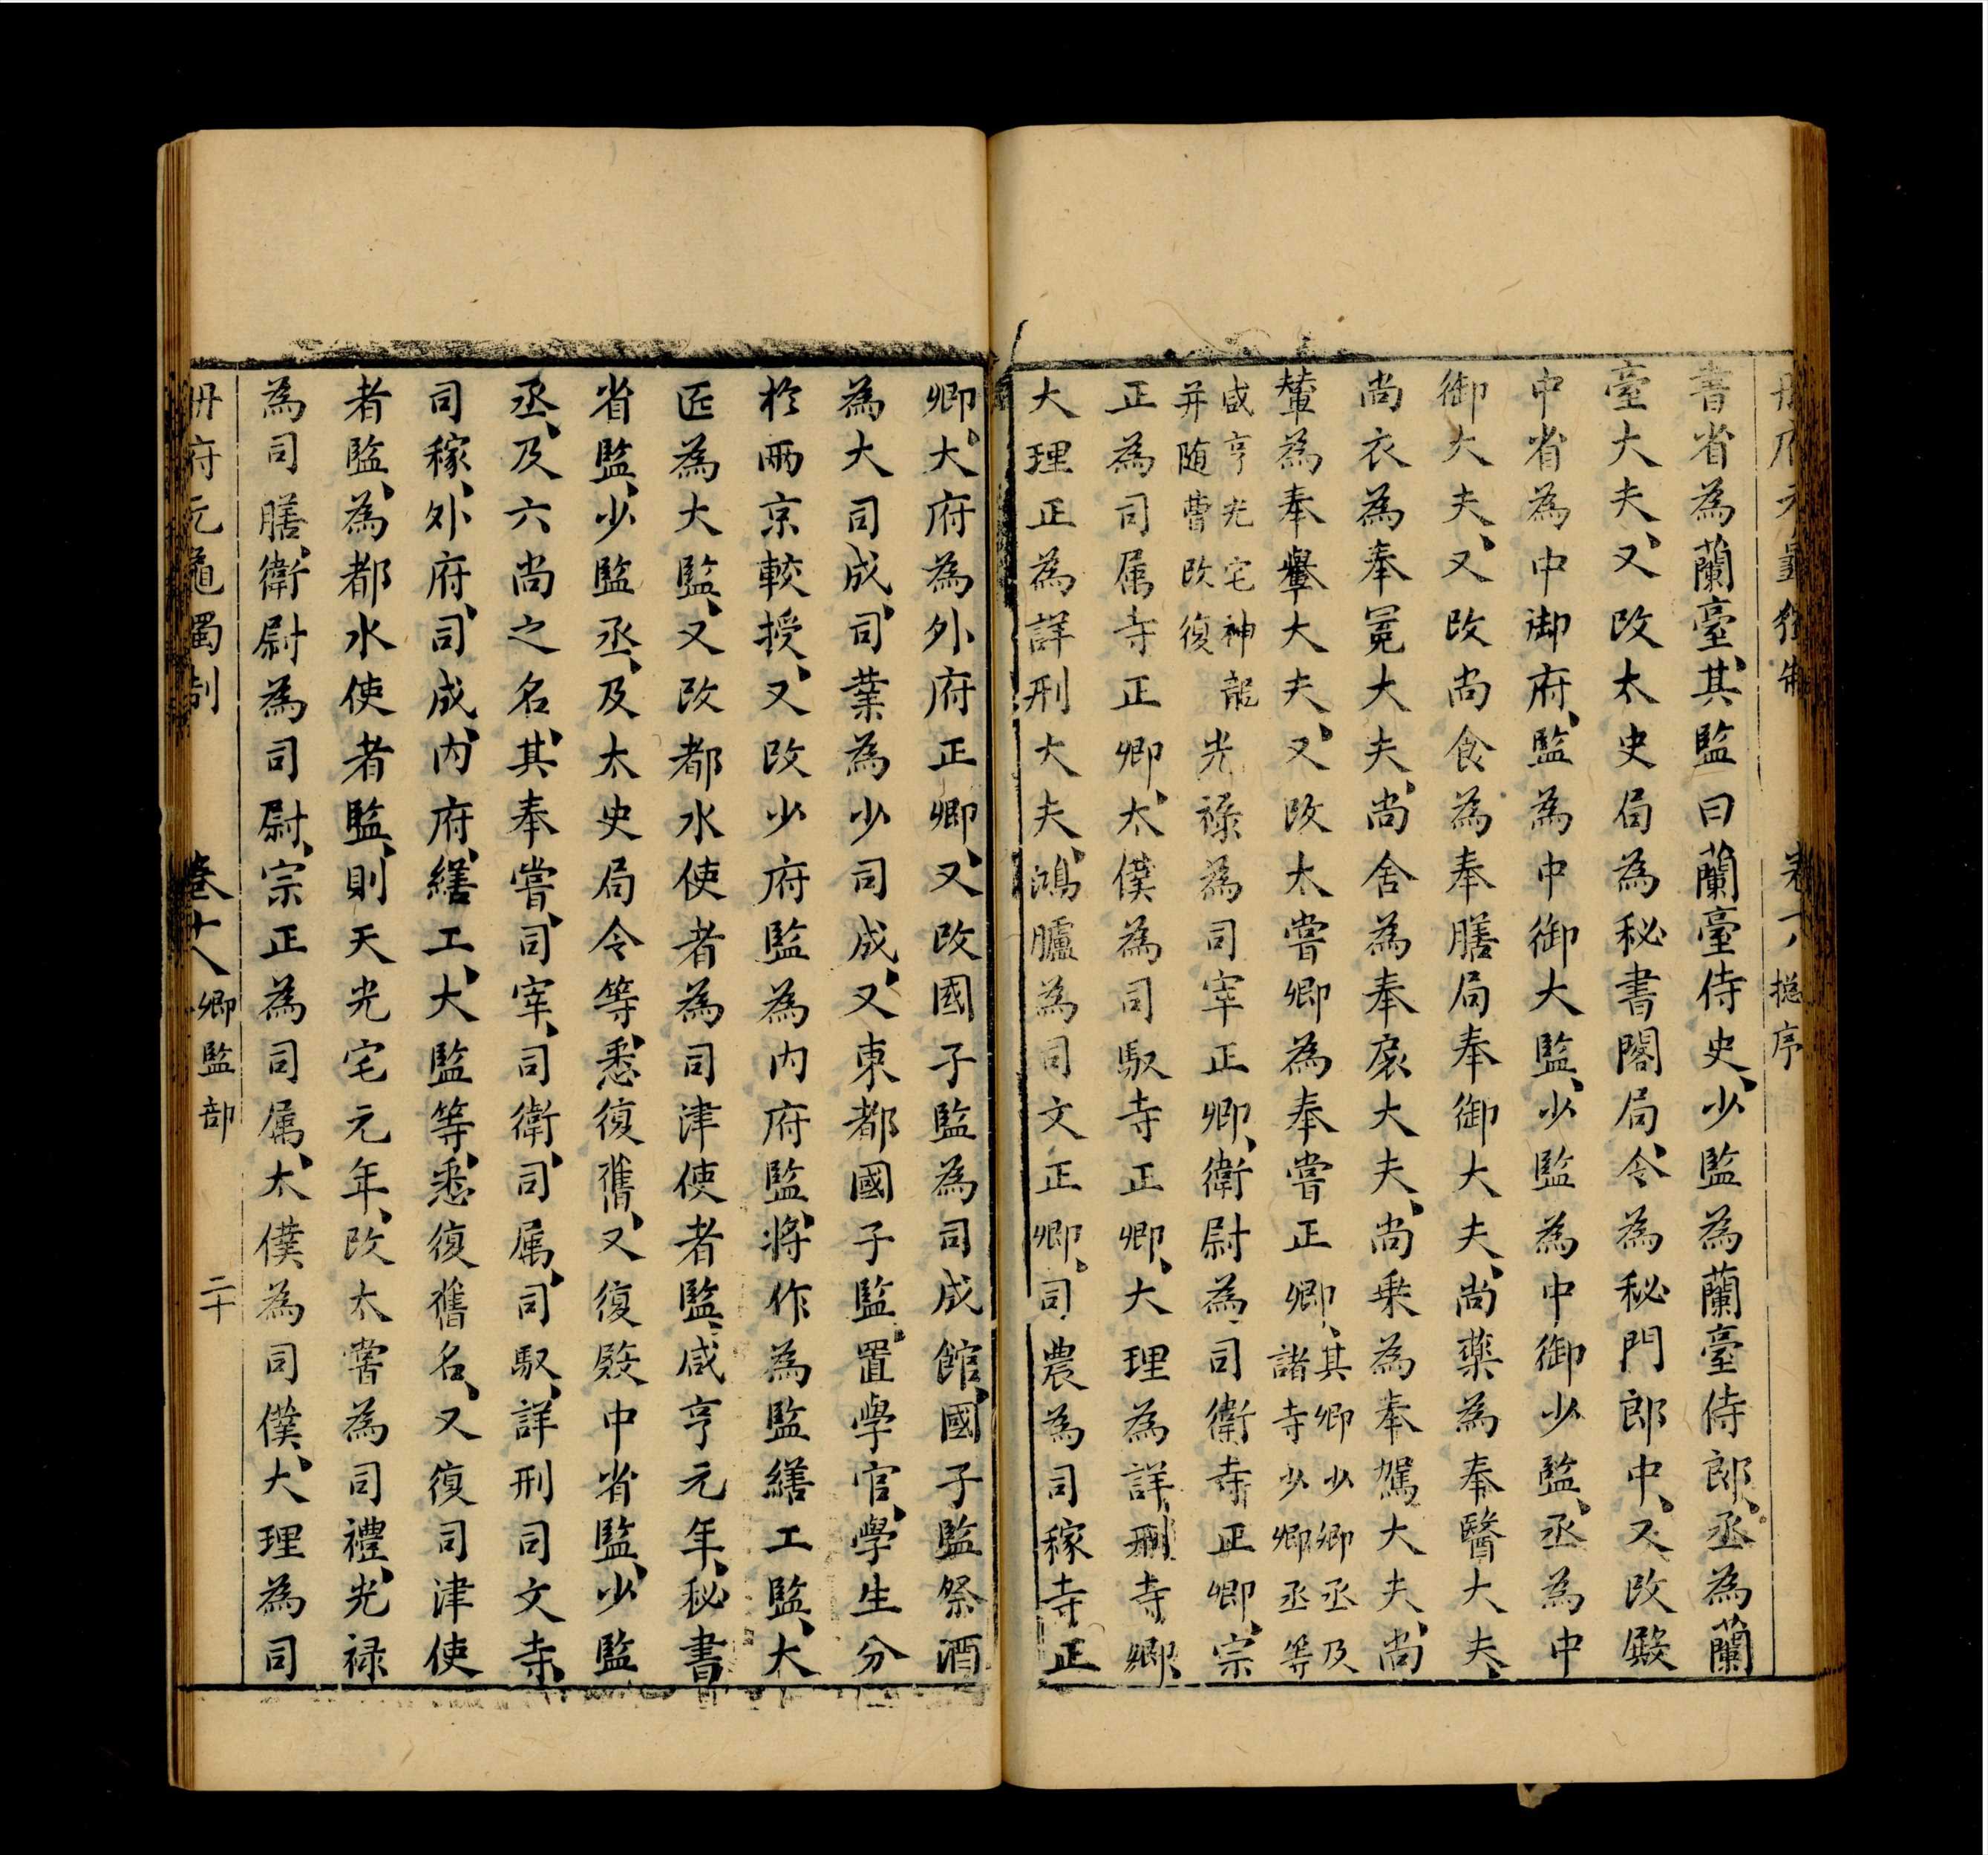 書省為蘭臺其監曰蘭臺侍史少監為蘭臺侍郎丞為蘭
臺大夫又改太史局為秘書閣局令為秘門郎中又改殿
中省為中御府監為中御大監少監為中御少監丞為中
御大夫又改尚食為奉膳局奉御大夫尚藥為奉醫大夫
尚衣為奉冕大夫尚舍為奉扆大夫尚乗為奉駕大夫尚
輦為奉轝大夫又改太甞卿為奉甞正卿其卿少卿丞及諸寺少卿丞等
咸亨光宅神龍并随曹改復光禄為司宰正卿衛尉為司衛寺正卿宗
正為司属寺正卿太僕為司馭寺正卿大理為詳刑寺卿
大理正為詳刑大夫鴻臚為同文正卿司農為司稼寺正
卿大府為外府正卿又改國子監為司成館國子監祭酒
為大司成司業為少司成又東都國子監置學官學生分
於兩京較授又改少府監為内府監將作為監繕工監大
匠為大監又改都水使者為司津使者監咸亨元年秘書
省監少監丞及太史局令等悉復舊又復殿中省監少監
丞及六尚之名其奉甞司宰司衛司属司馭詳刑司文寺
司稼外府司成内府繕工大監等悉復舊名又復司津使
者監為都水使者監則天光宅元年改太甞為司禮光禄
為司膳衛尉為司尉宗正為司属太僕為司僕大理為司
冊府元龜獨制 卷十八 卿監部 二十